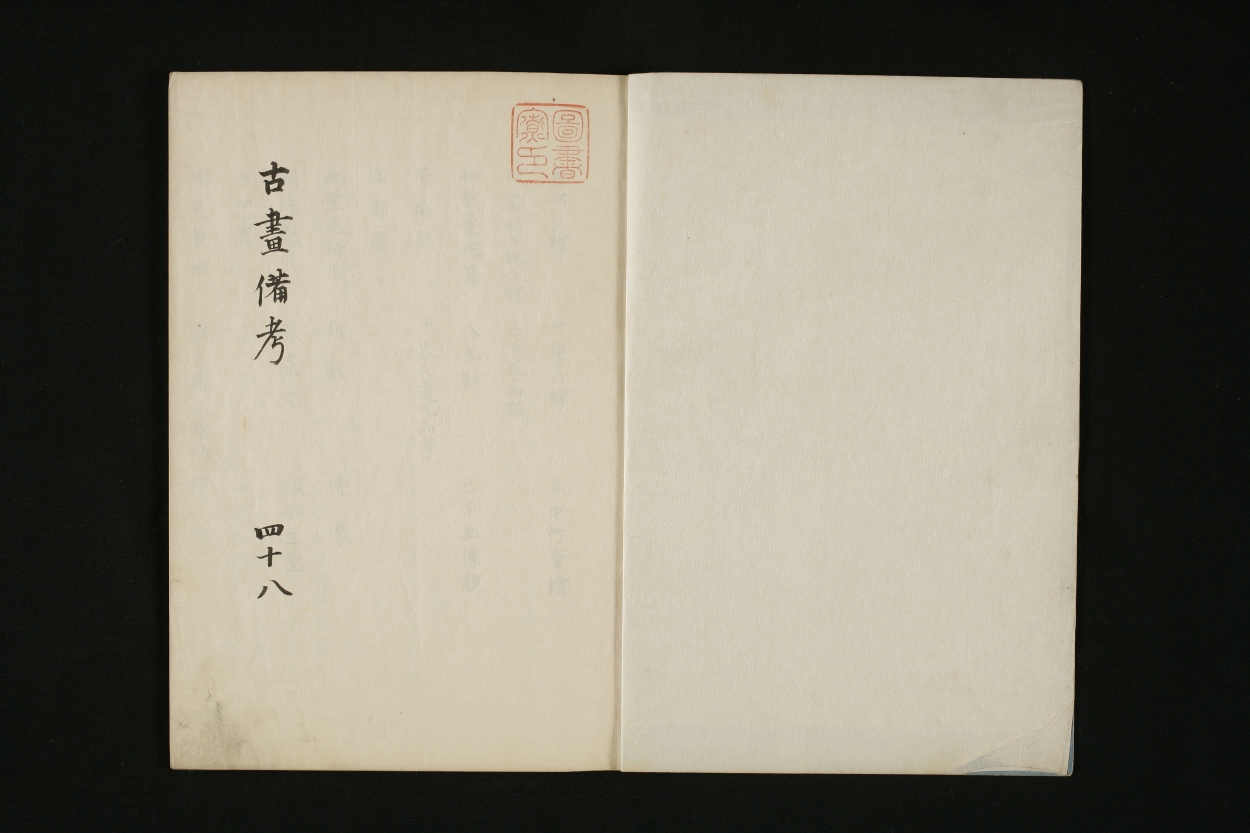 圖書
寮印
古畫備考
四十八